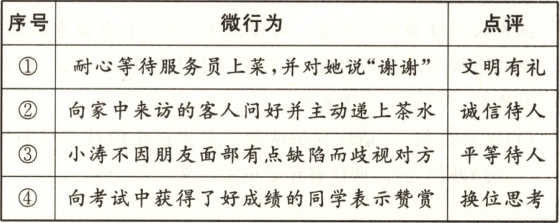 序号 微行为 点评
① 耐心等待服务员上菜,并对她说“谢谢” 文明有礼
② 向家中来访的客人问好并主动递上茶水 诚信待人
③ 小涛不因朋友面部有点缺陷而歧视对方 平等待人
④ 向考试中获得了好成绩的同学表示赞赏 换位思考